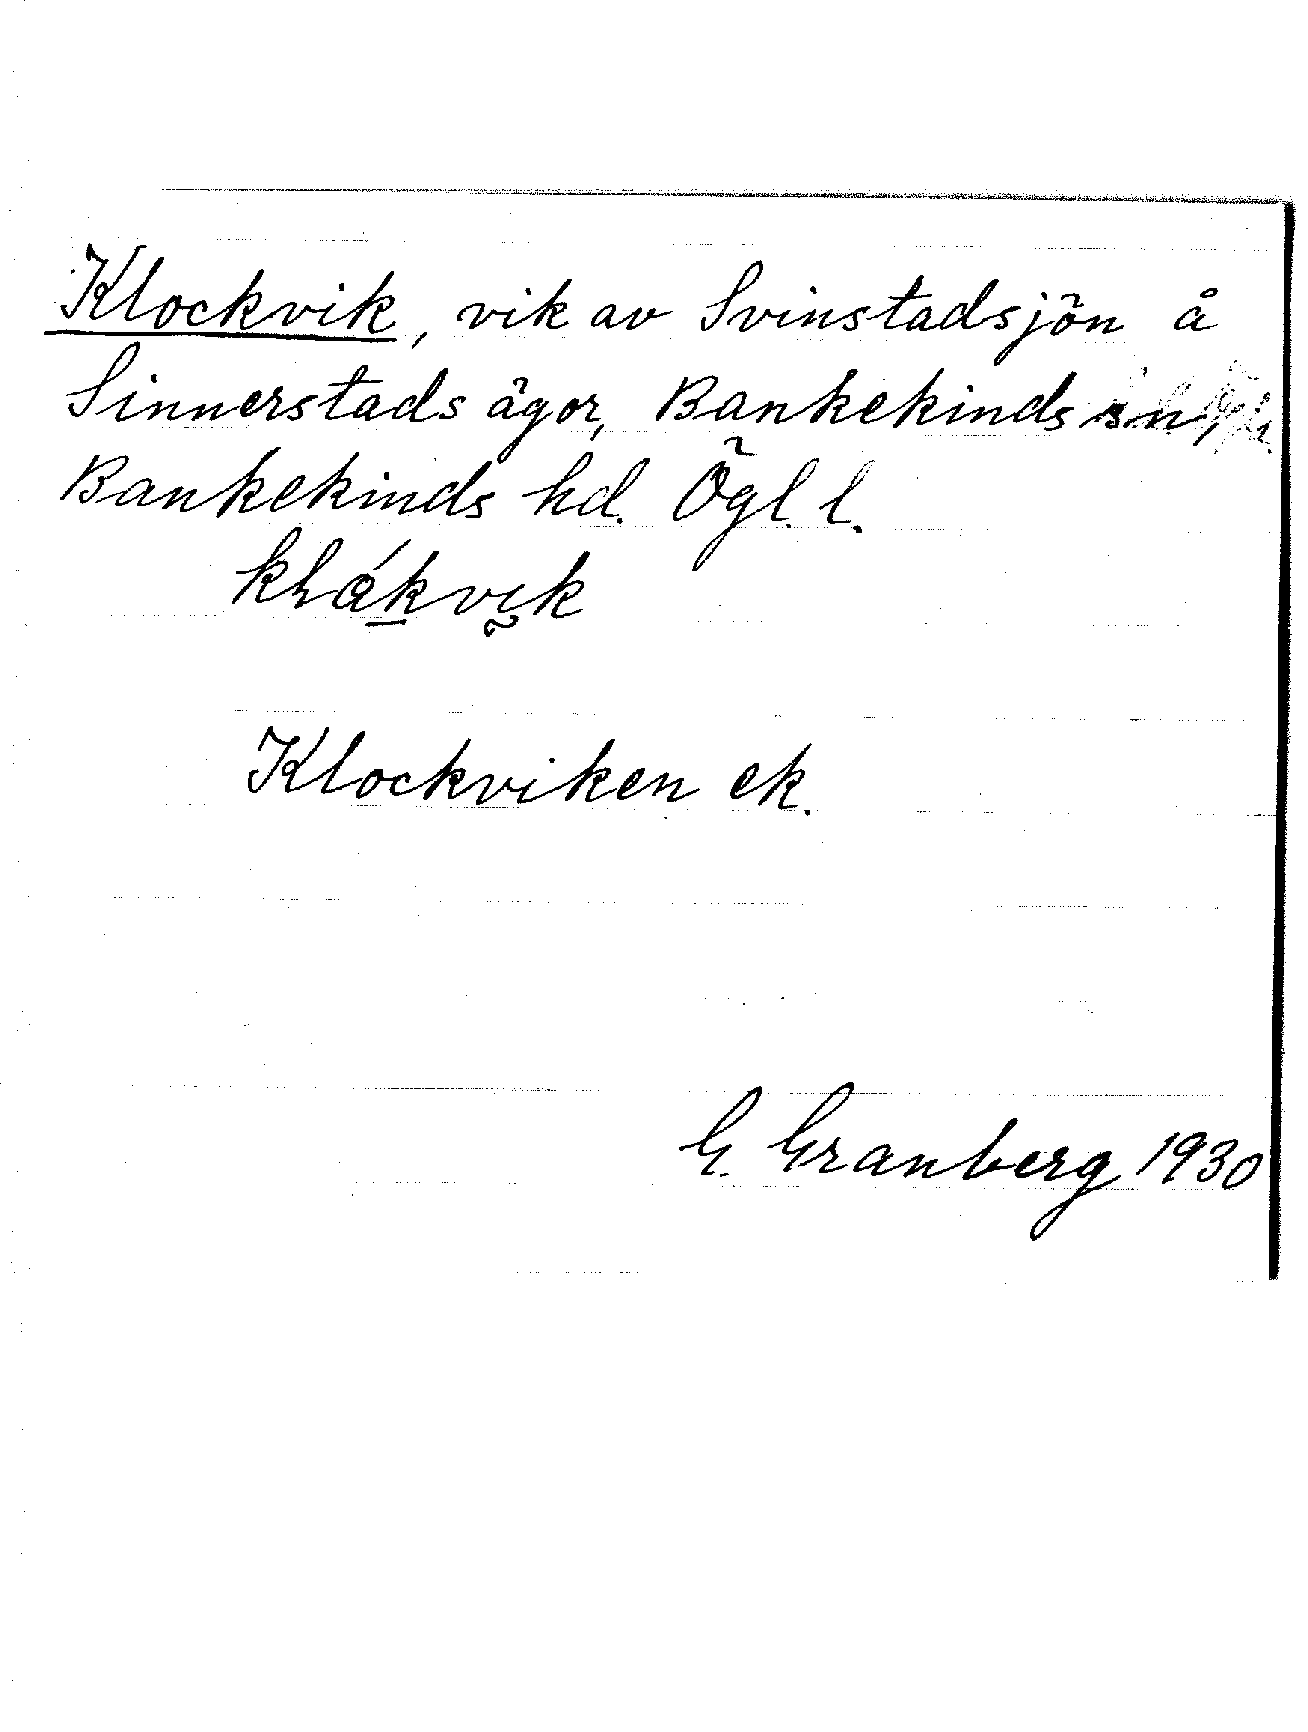 Klockvik, vik av Svinstadsjön å
Sinnerstads ägor, Bankekinds sn,
Bankekinds hd. Ögl. l.
Klockviken ek.
G. Granberg 1930